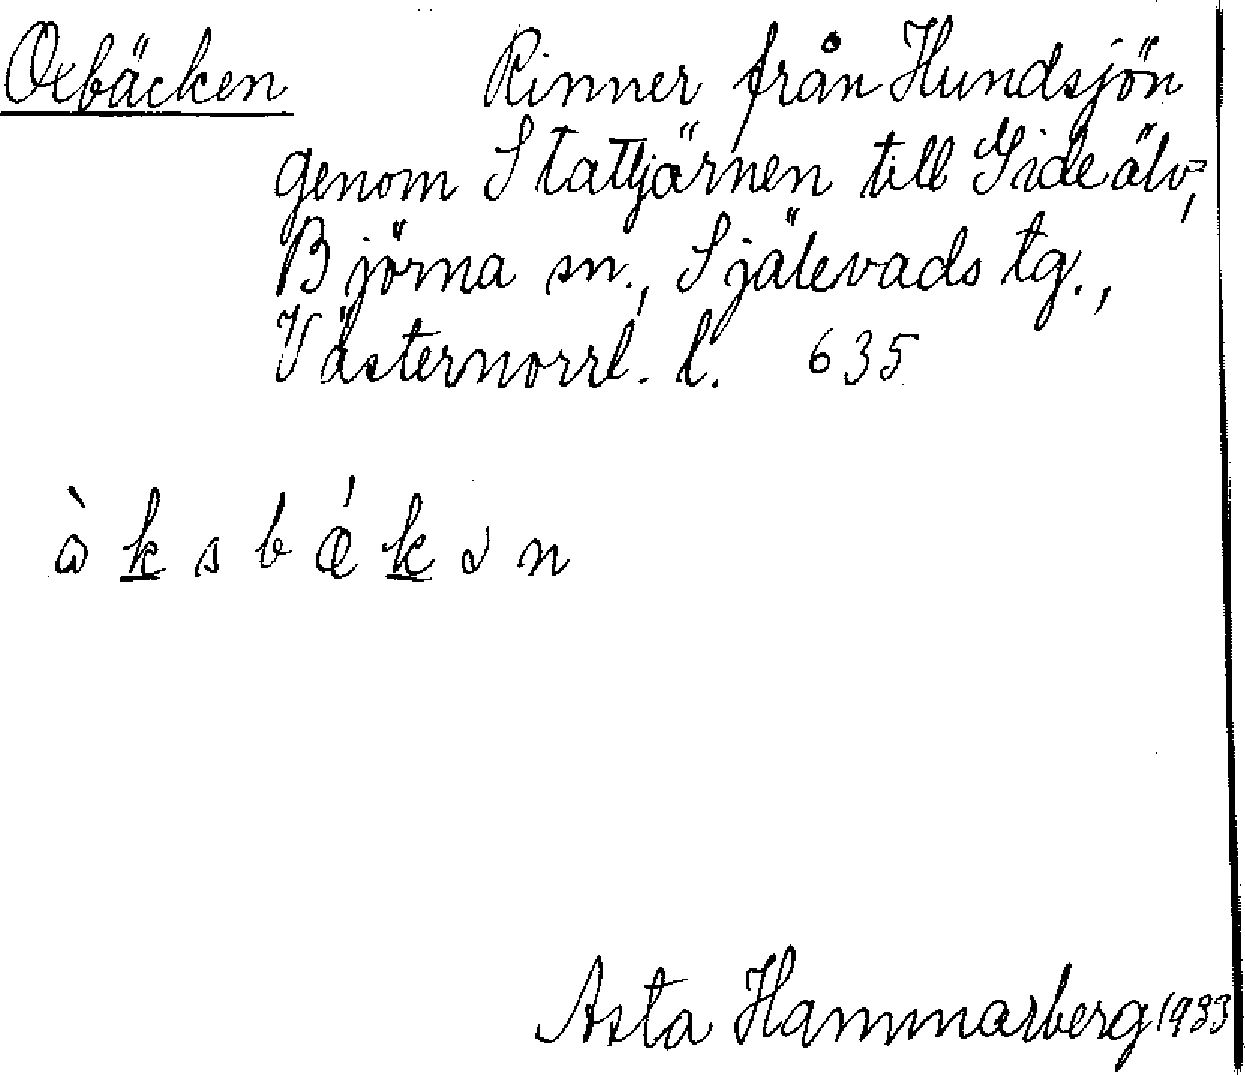 Oxbäcken Rinner från Hundsjön
genom Stattjärnen till Gideälv,
Björna sn., Själevads tg.,
Västernorrl. l. 635
ò k s b ǽ k ə n
Asta Hammarberg 1933